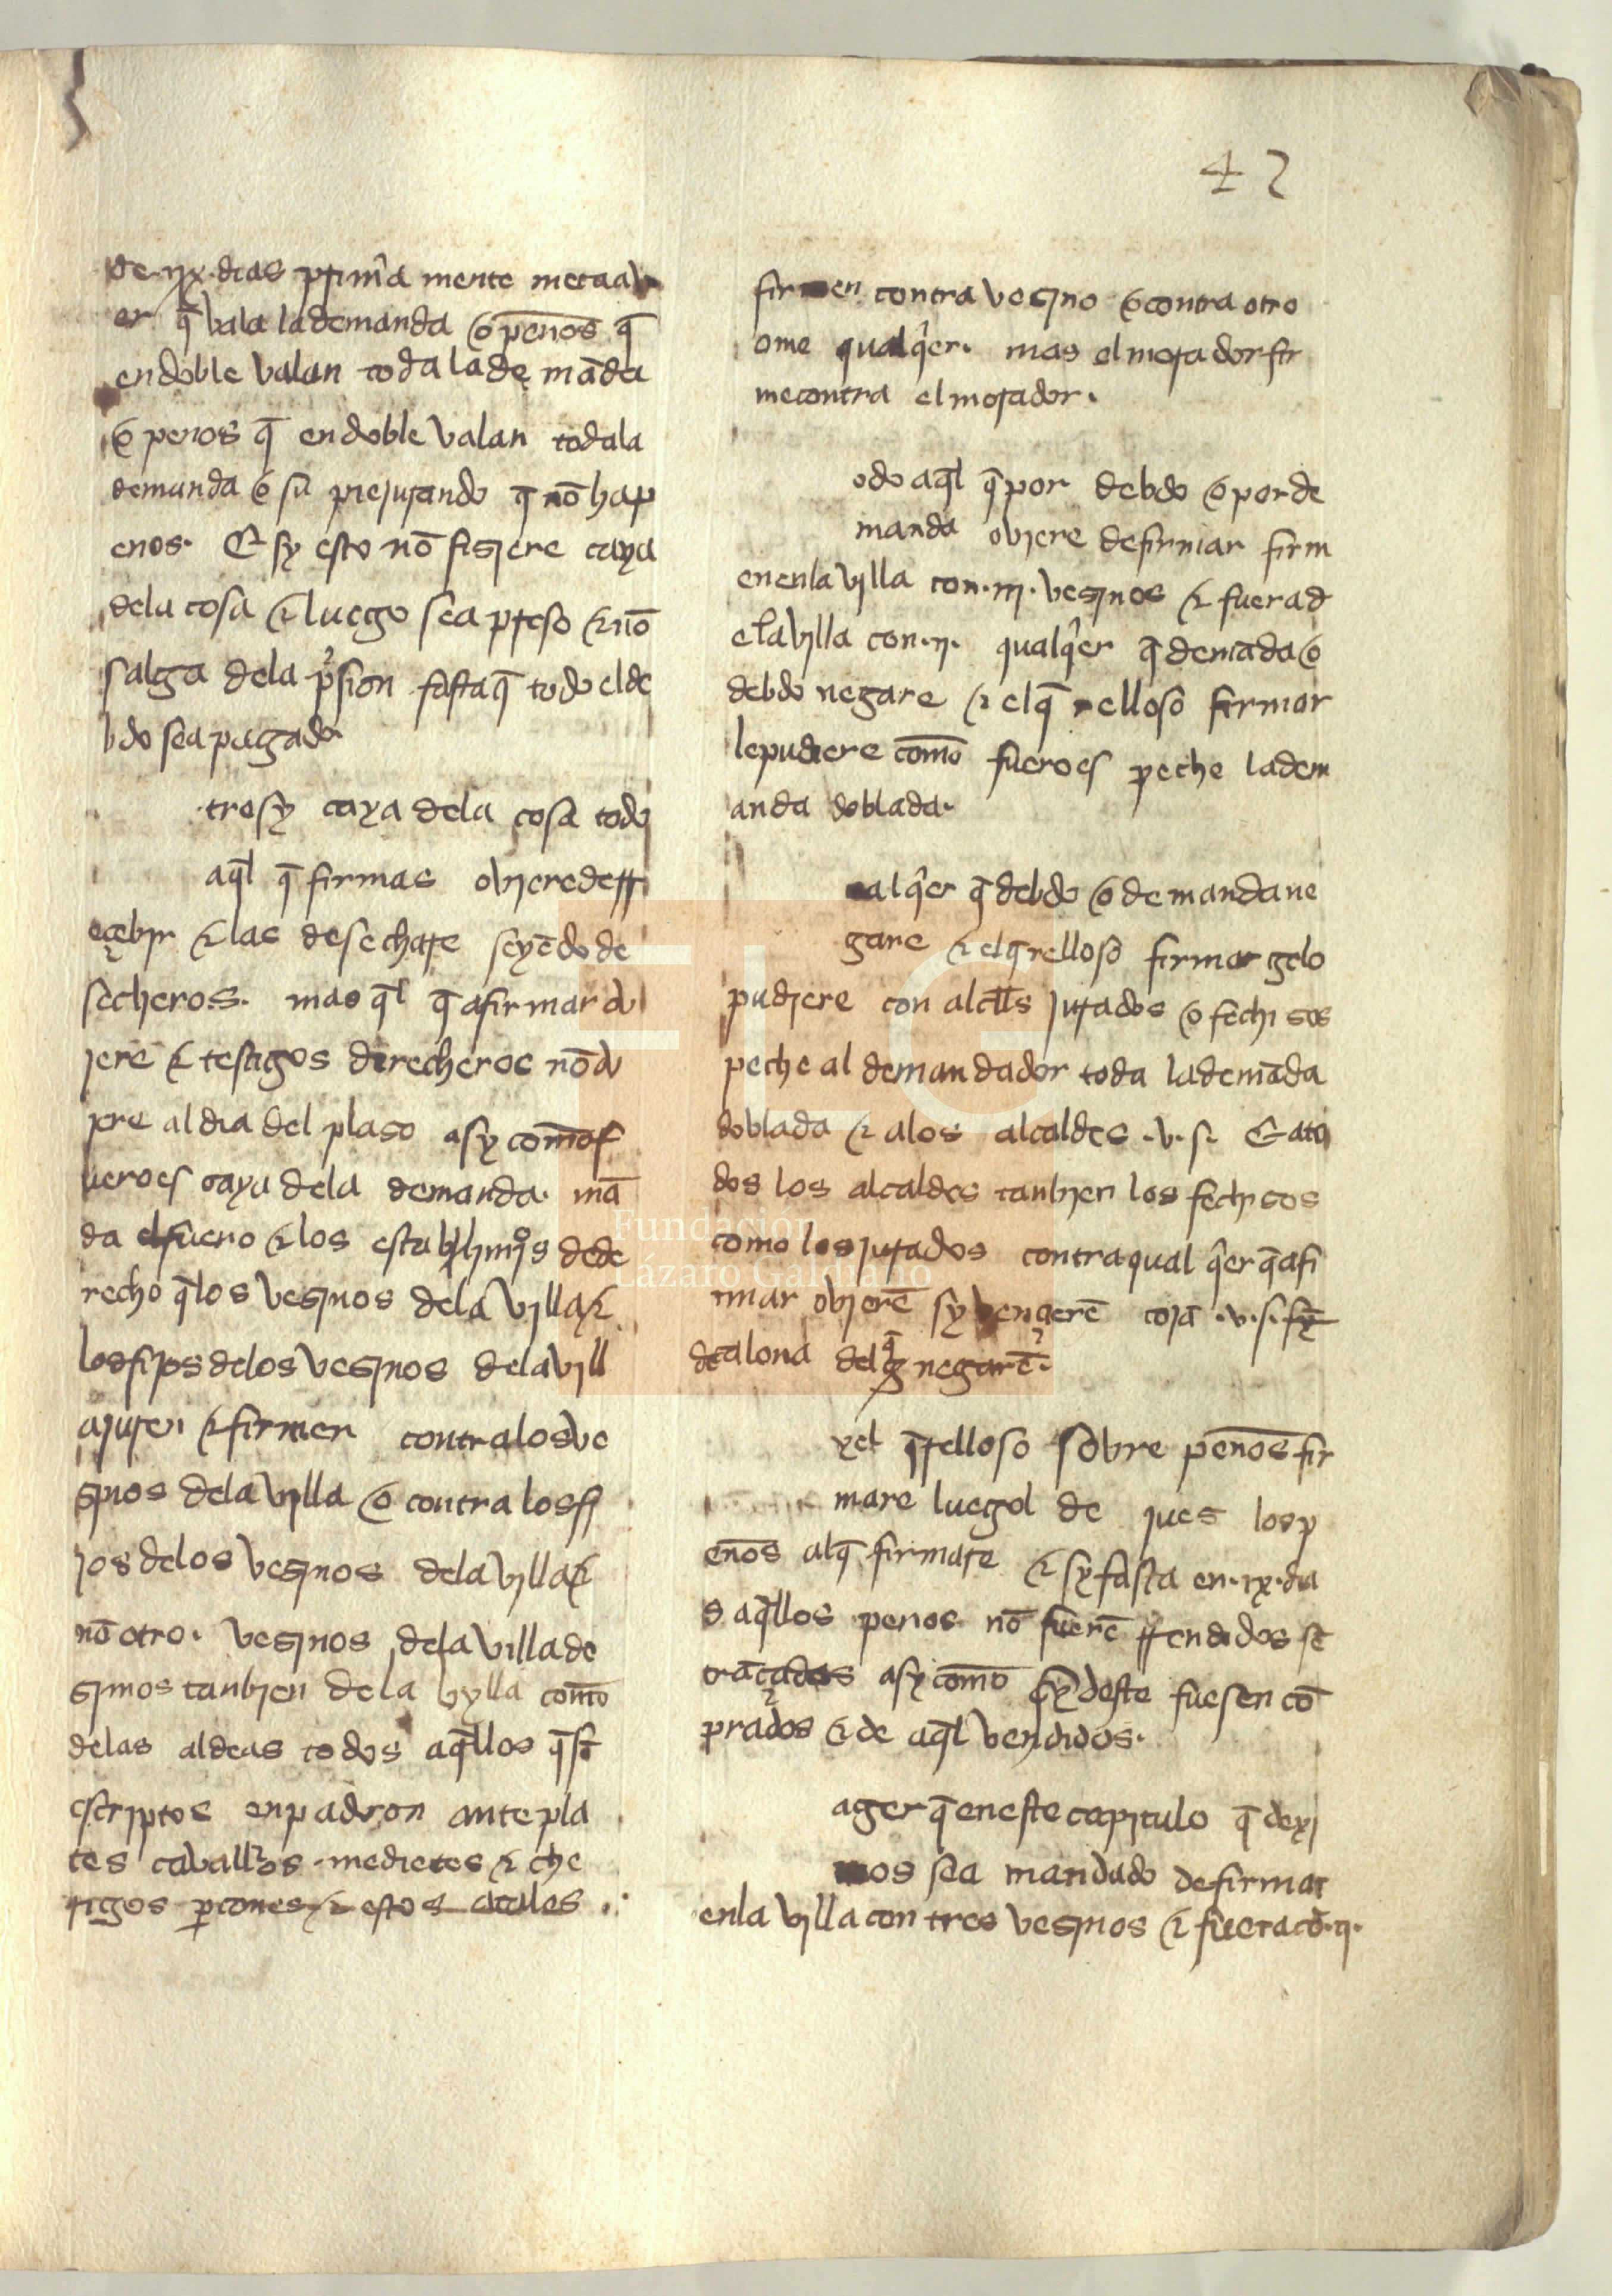 42
de .ix. dias prim̃a mente meta av
er q̄ vala la demanda o penos q̄
en doble valan toda la de māda
o penos q̄ en doble valan toda la
demanda o su jurando q̄ nō ha p
enos. E sy esto nō fisiere caya
dela cosa & luego sea preso & nō
salga dela p̃sion fasta q̄ todo el de
bdo sea pagado
trosy caya dela cosa todo
aq̄l q̄ firmas oviere de rr
eçebir & las desechare seyēdo de
recheros. mas q̄l q̄ a firmar ov
iere & testigos derecheros nō ov
iere al dia del plaso asy como f
uero es caya dela demanda. mā
da el fuero & los establiimos de de
recho q̄ los vesinos dela villa &
los fijos delos vesinos dela vill
a juren & firmen contra los ve
sinos dela villa o contra los fi
jos delos vesinos dela villa &
nō otro. vesinos dela villa de
simos tanbien dela vylla como
delas aldeas todos aq̄llos q̄ sō
escriptos en padron ante pla
tes cavall̃os
& estos atales
firmen contra vesino o contra otro
ome qualq̃er. mas el morador fir
me contra el morador.
odo aq̄l q̄ por debdo o por de
manda oviere de firmar firm
en en la villa con .iii. vesinos & fuera d
e la villa con .ii. qualq̃er q̄ demāda o
debdo negare & el q̄relloso firmar
le pudiere como fuero es peche la dem
anda doblada.
alq̃er q̄ debdo o demanda ne
gare & el qrelloso firmar gelo
pudiere con alclls jurados o fechisos
peche al demandador toda la demāda
doblada & alos alcaldes .v. s. E a to
dos los alcaldes tanbien los fechisos
como los jurados contra qual q̃er q̄ a fi
rmar ovierē sy vençerē cojā .v. s.
de calona del q̄ negarē.
yel q̄relloso sobre penos fir
mare luegol de jues los p
enos al q̄ firmare & sy fasta en .ix. dia
s aq̄llos penos nō fuerē rrendidos sē
traçados asy como sy deste fuesen cō
prados & de aq̄l vendidos.
ager q̄ en este capitulo q̄ dexi
mos sea mandado de firmar
en la villa con tres vesinos & fuera cō .ii.
FLG
Fundación
Lázaro Galdiano